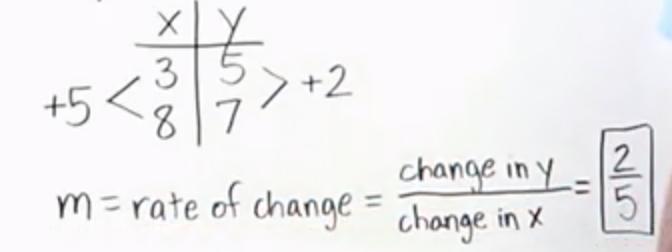 x | y
+5 < 3 | 5 > +2
8 | 7
m = rate of change = change in y / change in x = 2/5